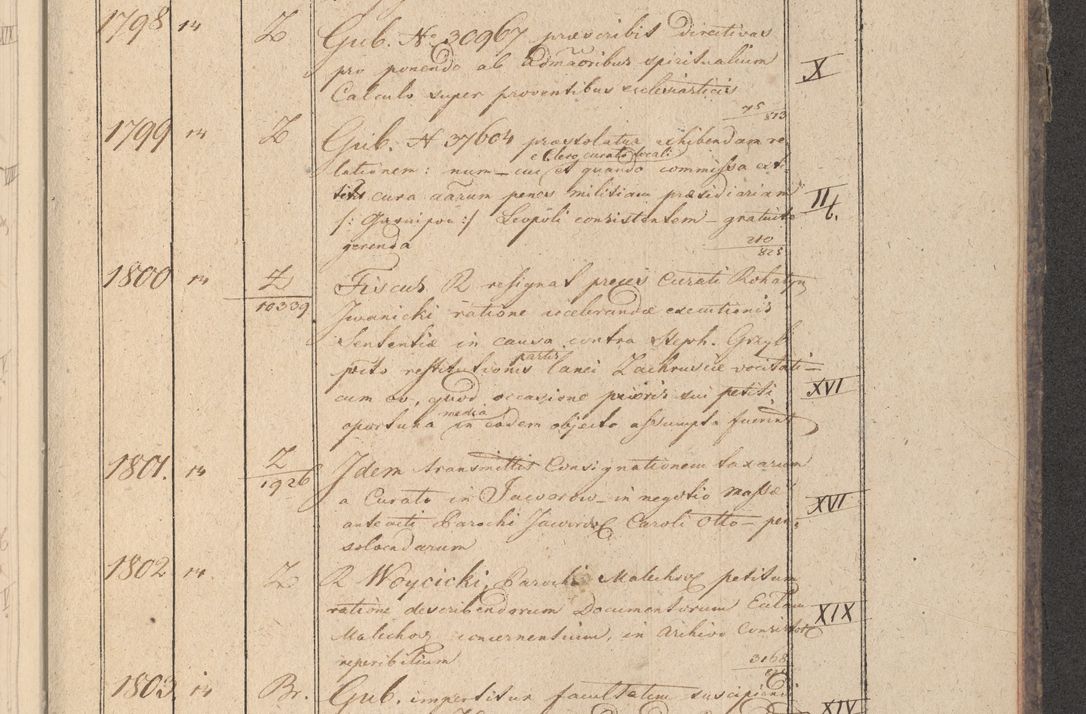 1798 14 Z Gub. No 30967 praescribit directivas
pro ponendo ab Admāoribus spiritualium X
Calculo super proventibus ecclesiasticis
75/813
1799 14 Z Gub. N 37604 praestolatur exhibendam re
e Clero curato locali
lationem: num – cui et quando commissa exti
cura aārum penes militiam praesidiariam II/b.
/: Garnizon :/ Leopoli consistentem – gratuito
gerenda 210/825
1800 14 Z/10339 Fiscus R resignat preces Curati Rohatyn
Iwanicki ratione accelerandae executionis
Sententiae in causa contra Steph. Grzyb
partis
pcto restitutionis lanei Zachrusie vocitati –
cum eo, quod occasione prioris sui petiti XVI
media
oportuna in eodem objecto assumpta fuerint
1801. 14 Z/1926 Idem transmittit Consignationem taxarum
a Curato in Jaworow – in negotio massae XVI
anteacti Parochi Jaworov Caroli Otto – per
solvendarum
1802 14 Z R Woycicki, Parochi Malechov petitum
ratione describendorum Documentorum Ecclam XIX
Malechov concernentium, in Archivo Consistor
reperibilium 3168
1803 14 Br. Gub. impertitur facultatem suscipiendi
XIV